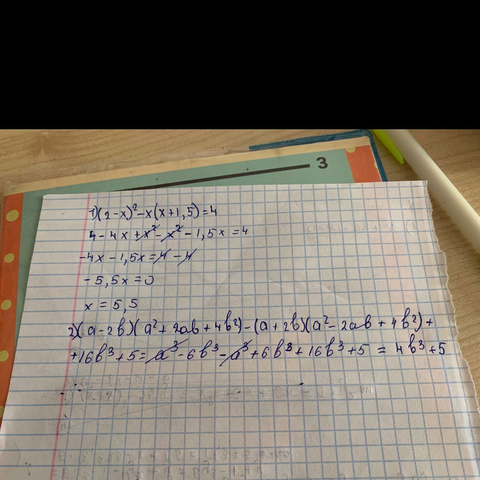 3
1) (2-x)² - x(x+1,5) = 4
4 - 4x + x² - x² - 1,5x = 4
-4x - 1,5x = 4 - 4
-5,5x = 0
x = 5,5
2) (a-2b)(a²+2ab+4b²) - (a+2b)(a²-2ab+4b²) +
+16b³+5 = a³ - 6b³ - a³ + 6b³ + 16b³ + 5 = 4b³+5